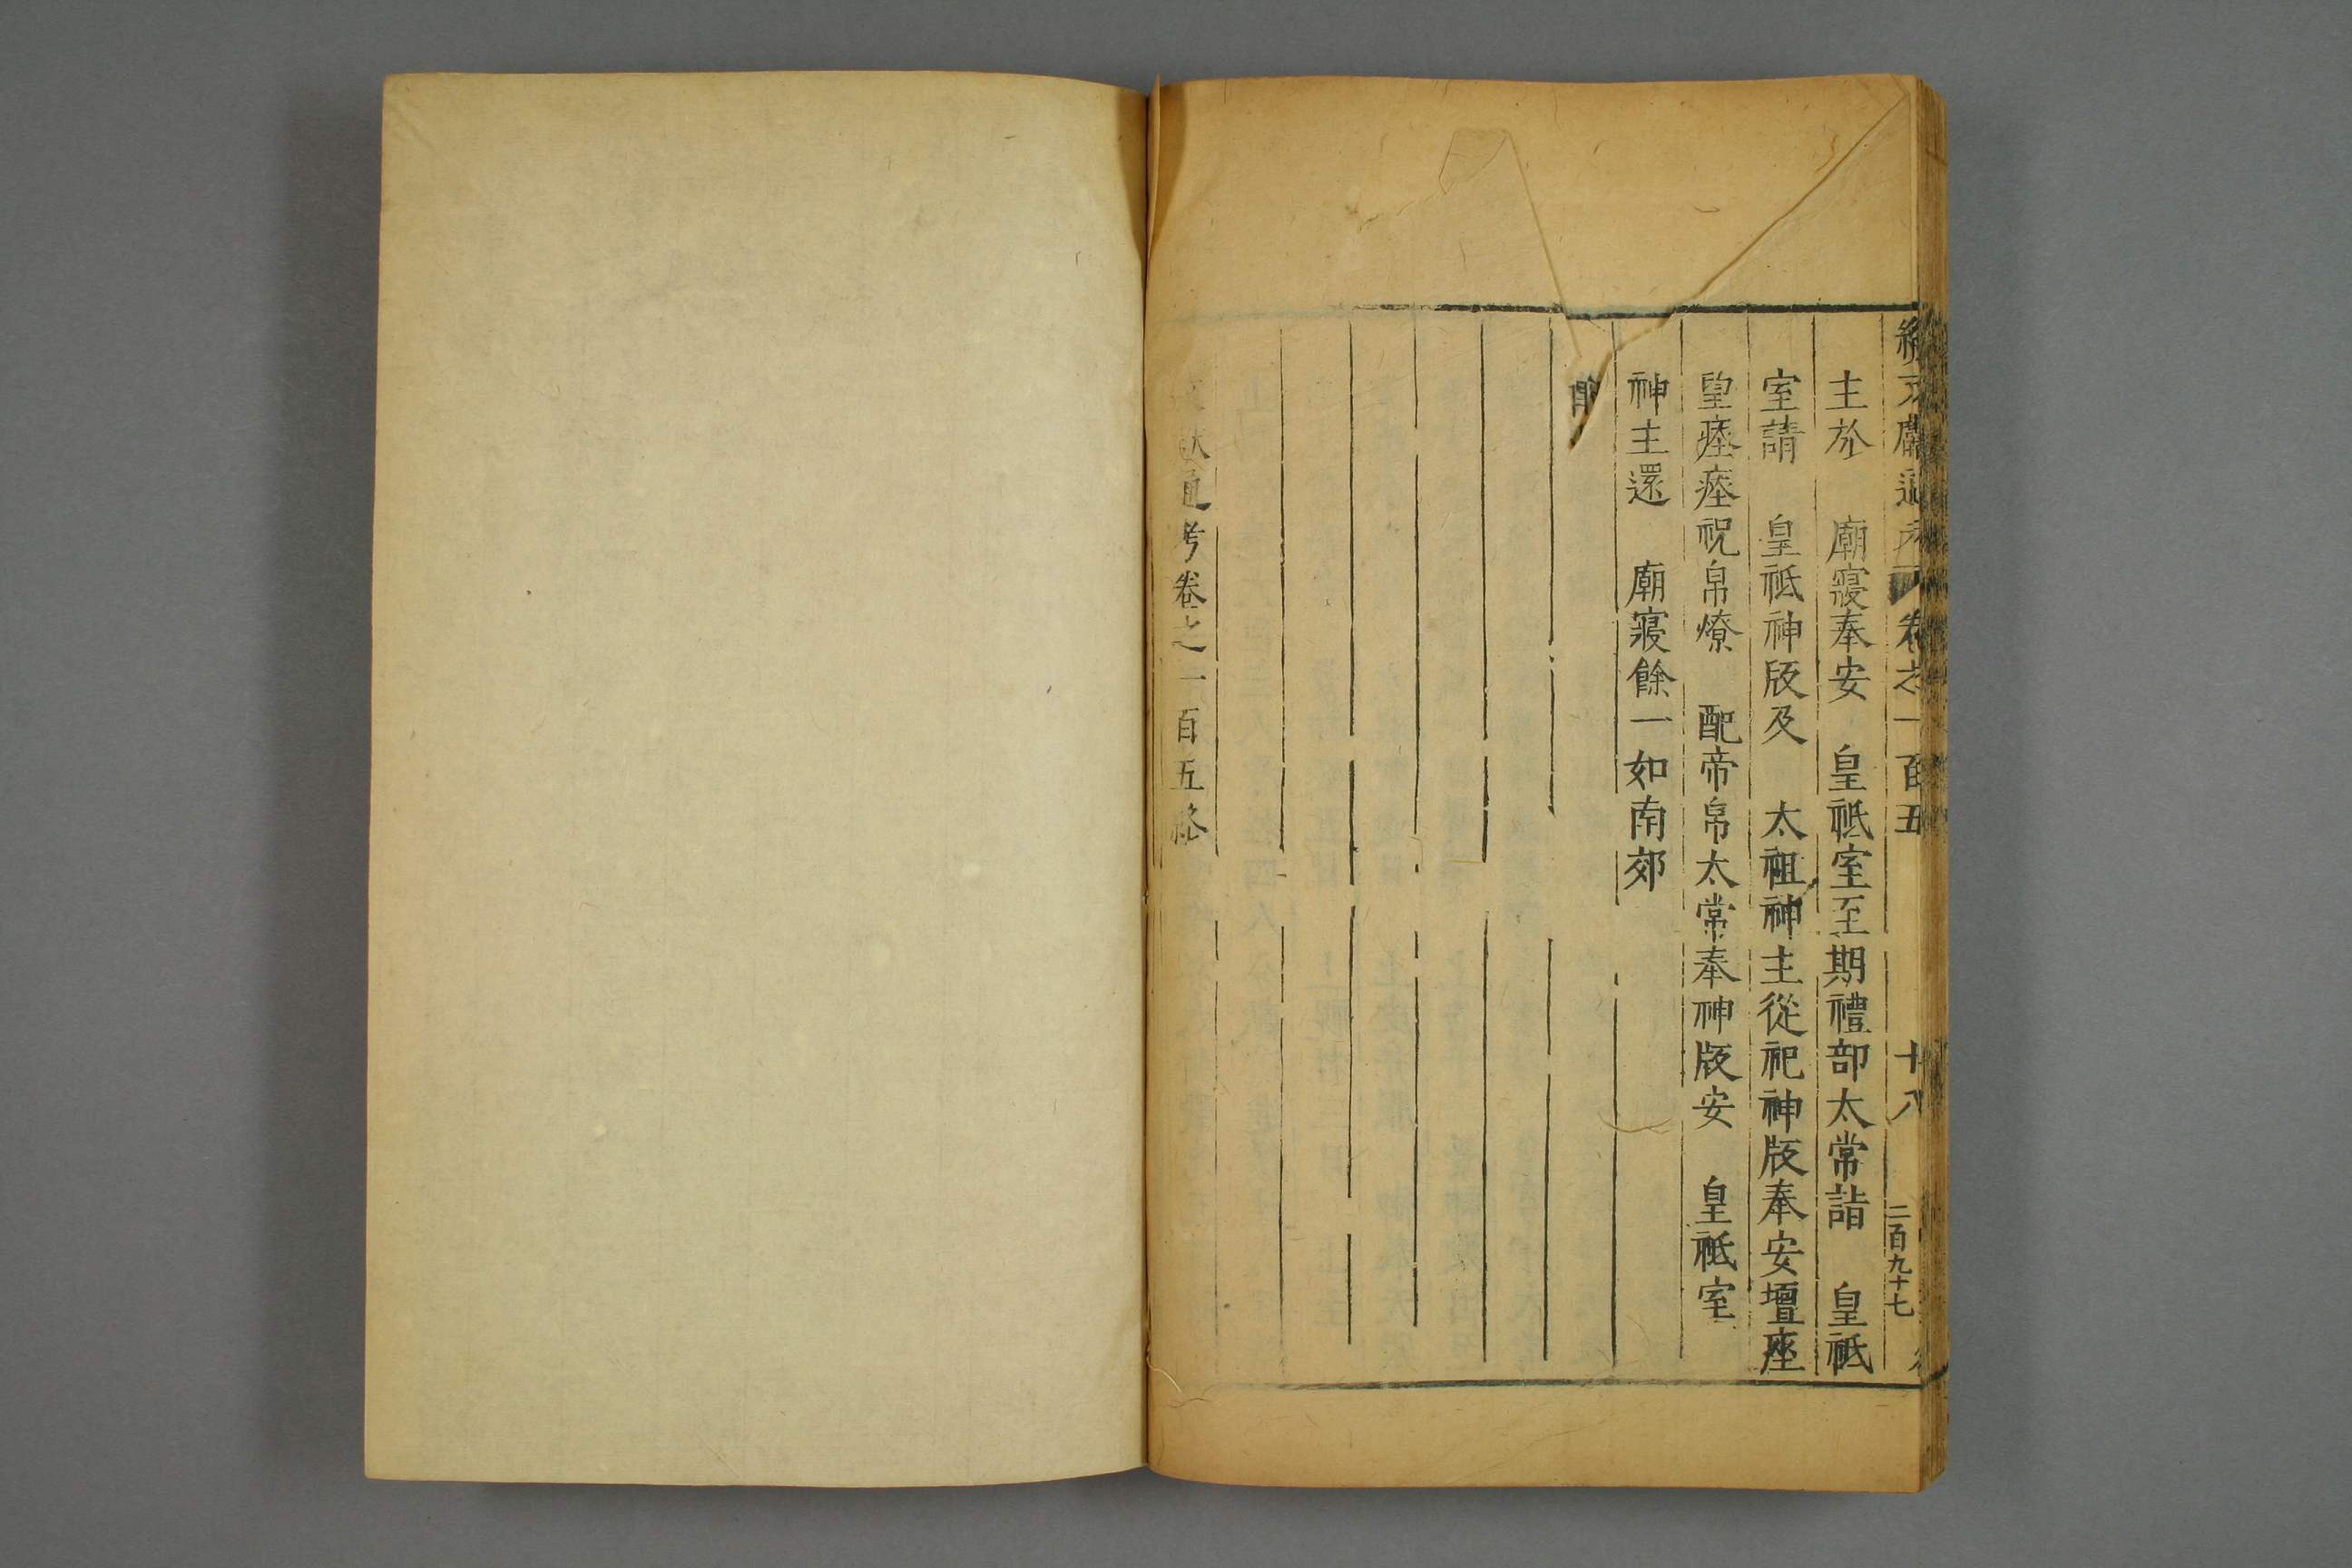 續文獻通考 卷之一百五 十八 二百九十七
主於 廟寢奉安 皇祇室至期禮部太常詣 皇祇
室請 皇祇神版及 太祖神主從祀神版奉安壇座
望瘞瘞祝帛燎 配帝帛太常奉神版安 皇祇室
神主還 廟寢餘一如南郊
獻通考卷之一百五終